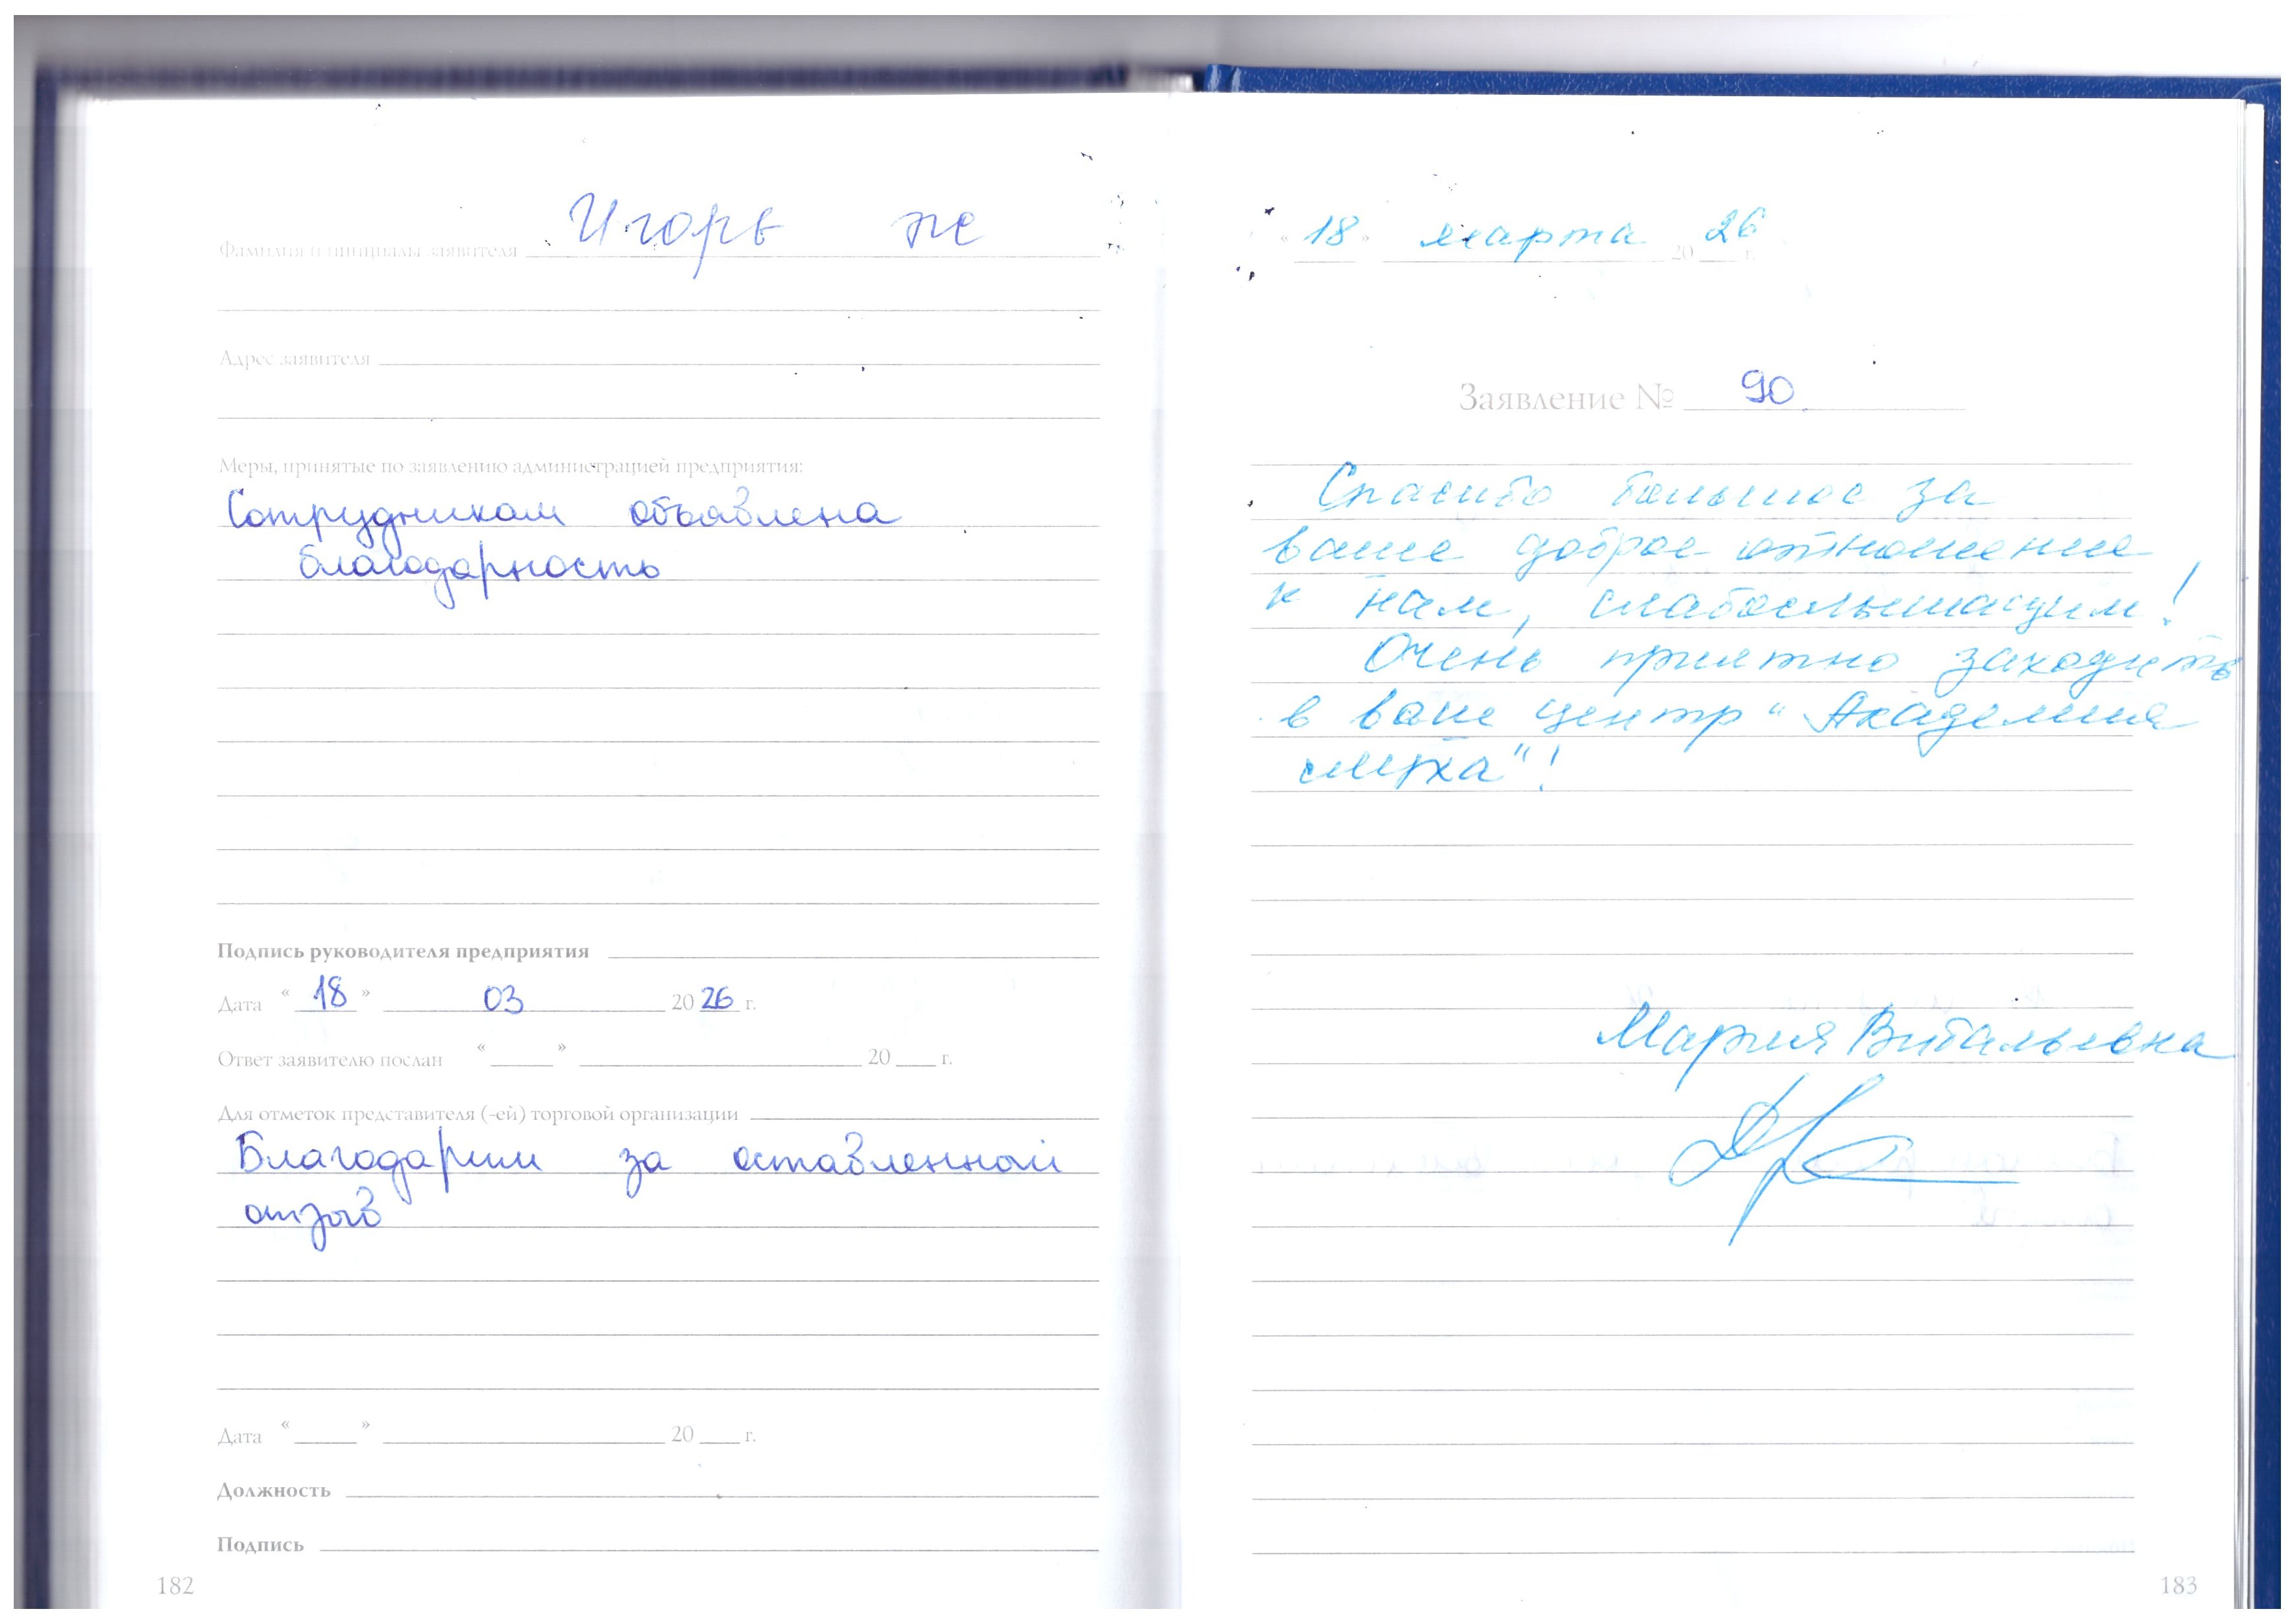 Фамилия и инициалы заявителя Игорь же
Адрес заявителя
Меры, принятые по заявлению администрацией предприятия:
Сотрудникам объявлена
благодарность
Подпись руководителя предприятия
Дата « 18 » 03 20 26 г.
Ответ заявителю послан « » 20 г.
Для отметок представителя (-ей) торговой организации
Благодарим за оставленный
отзыв
Дата « » 20 г.
Должность
Подпись
182
« 18 » марта 20 26 г.
Заявление № 90
Спасибо большое за
ваше доброе отношение
к нам, слабослышащим!
Очень приятно заходить
в ваш центр "Академия
слуха"!
Мария Витальевна
183